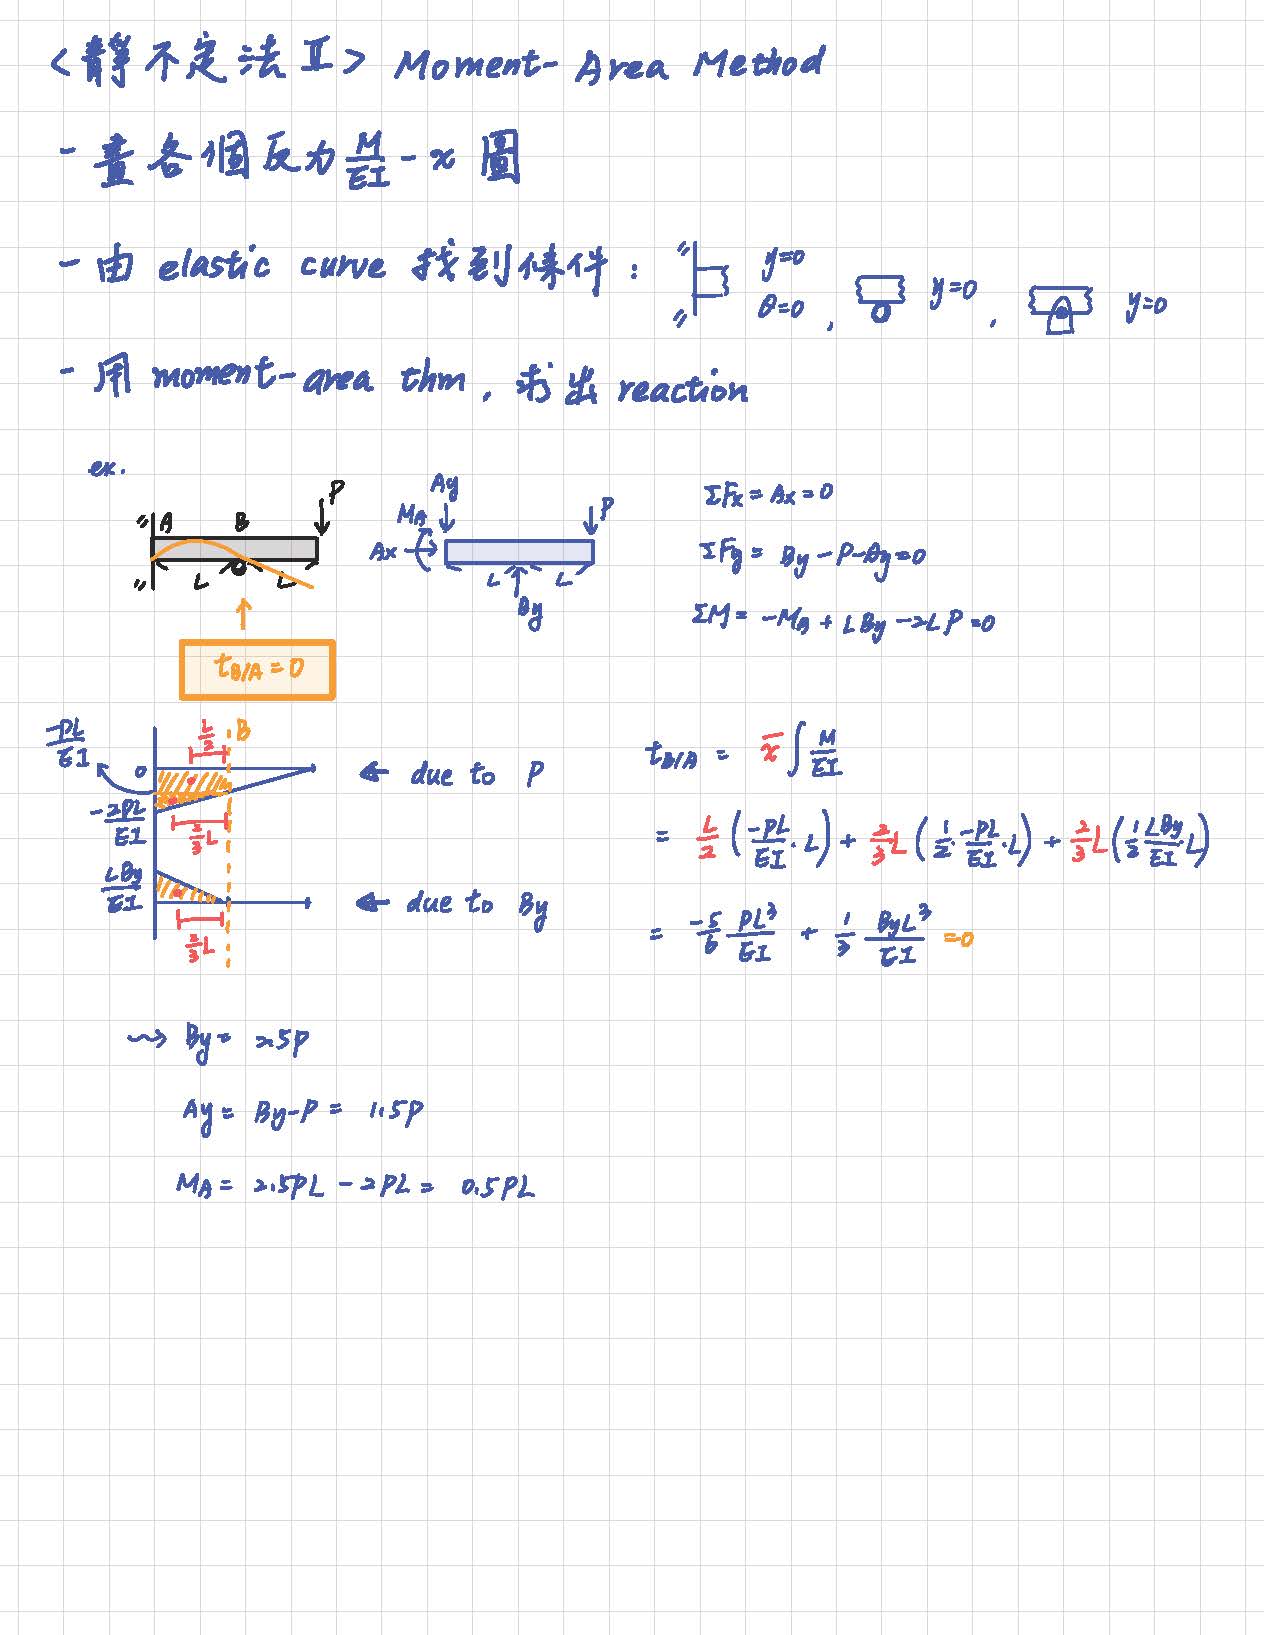 <靜不定法 II> Moment-Area Method
- 畫各個反力 M/EI - x 圖
- 由 elastic curve 找到條件: y=0 θ=0 , y=0 , y=0
- 用 moment-area thm, 求出 reaction
ex.
A B P L L
Ay MA Ax P L L By
ΣFx = Ax = 0
ΣFy = By - P - Ay = 0
ΣM = -MA + LBy - 2LP = 0
tB/A = 0
-PL/EI 0 -2PL/EI L/2 B 2/3 L ← due to P
LBy/EI 2/3 L ← due to By
tB/A = x̄ ∫ M/EI
= L/2 (-PL/EI · L) + 2/3 L (1/2 · -PL/EI · L) + 2/3 L (1/2 LBy/EI · L)
= -5/6 PL³/EI + 1/3 ByL³/EI = 0
⇝ By = 2.5P
Ay = By - P = 1.5P
MA = 2.5PL - 2PL = 0.5PL